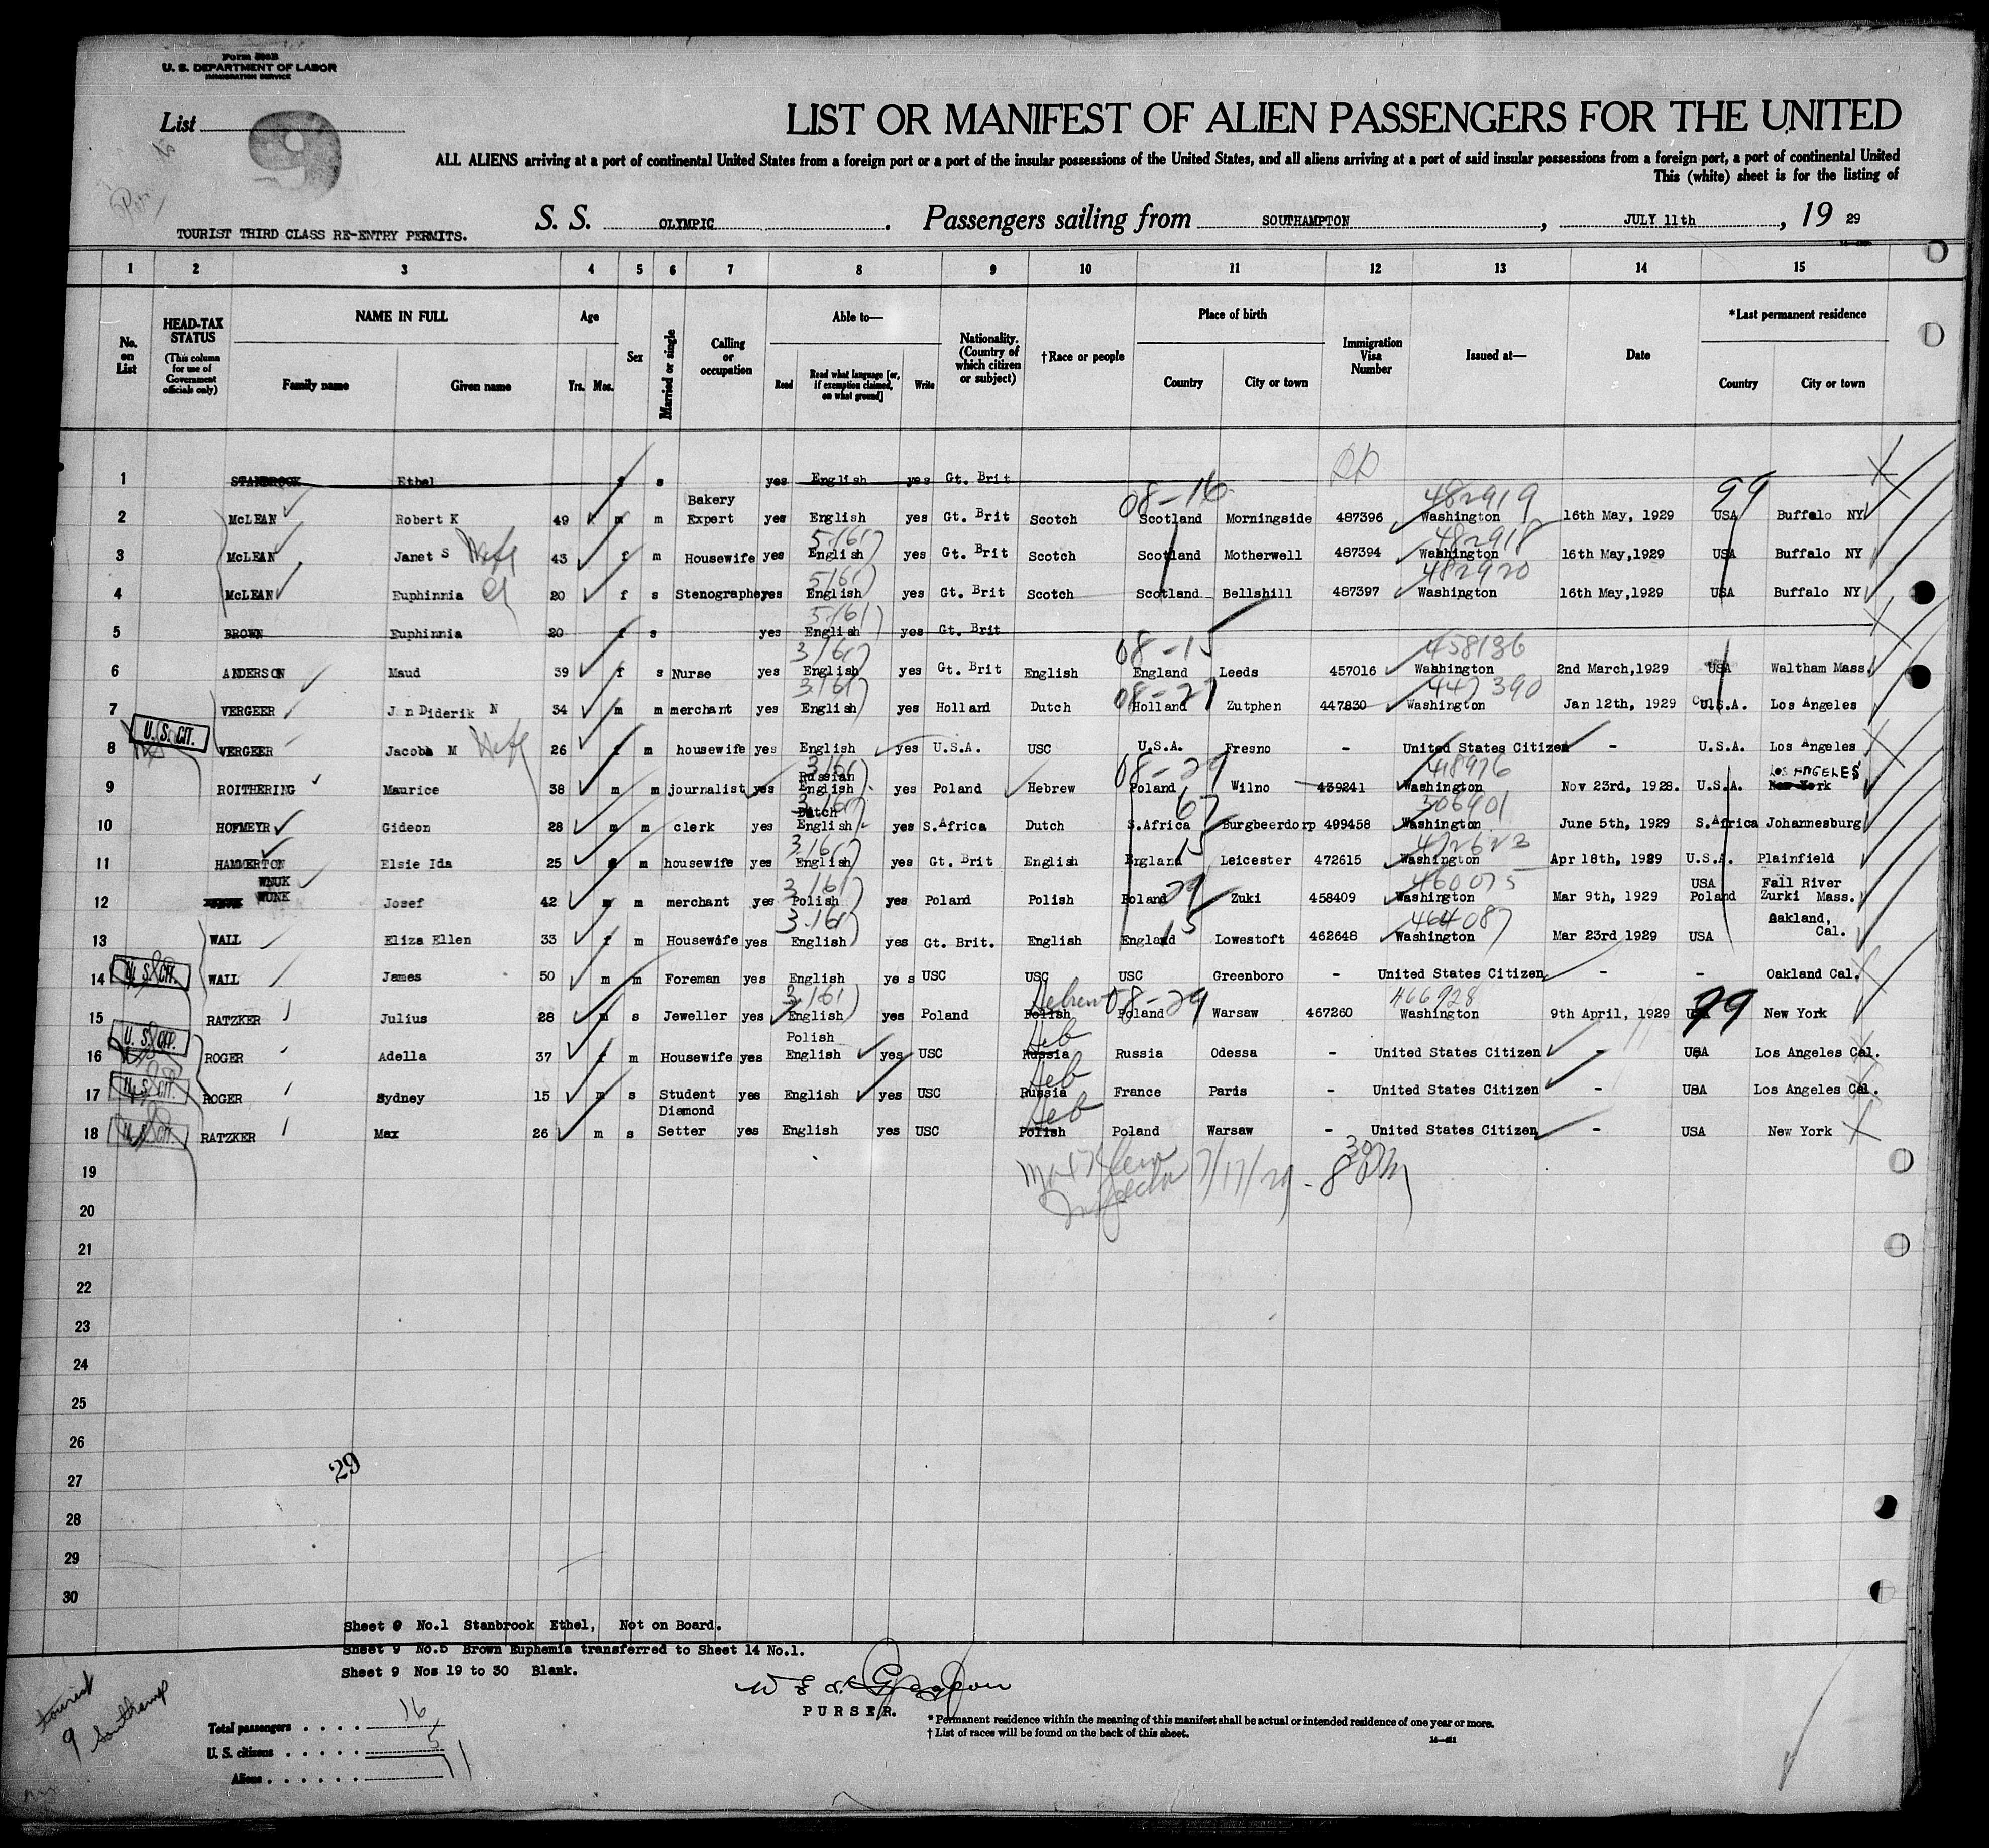 Form 500B
U. S. DEPARTMENT OF LABOR
IMMIGRATION SERVICE
List 9
LIST OR MANIFEST OF ALIEN PASSENGERS FOR THE UNITED
ALL ALIENS arriving at a port of continental United States from a foreign port or a port of the insular possessions of the United States, and all aliens arriving at a port of said insular possessions from a foreign port, a port of continental United
This (white) sheet is for the listing of
TOURIST THIRD CLASS RE-ENTRY PERMITS.
S. S. OLYMPIC. Passengers sailing from SOUTHAMPTON, JULY 11th, 19 29
1 2 3 4 5 6 7 8 9 10 11 12 13 14 15
No. on List
HEAD-TAX STATUS (This column for use of Government officials only)
NAME IN FULL Family name Given name
Age Yrs. Mos.
Sex
Married or single
Calling or occupation
Able to— Read Read what language [or, if exemption claimed, on what ground] Write
Nationality. (Country of which citizen or subject)
†Race or people
Place of birth Country City or town
Immigration Visa Number
Issued at—
Date
*Last permanent residence Country City or town
1 STANBROOK Ethel f s yes English yes Gt. Brit
08-16 482919 99
2 McLEAN Robert K 49 m m Bakery Expert yes English yes Gt. Brit Scotch Scotland Morningside 487396 Washington 16th May, 1929 USA Buffalo NY
482918
3 McLEAN Janet S Wife 43 f m Housewife yes English yes Gt. Brit Scotch Scotland Motherwell 487394 Washington 16th May,1929 USA Buffalo NY
482920
4 McLEAN Euphinnia 20 f s Stenographer yes English yes Gt. Brit Scotch Scotland Bellshill 487397 Washington 16th May,1929 USA Buffalo NY
5 BROWN Euphinnia 20 f s yes English yes Gt. Brit
08-15 458136
6 ANDERSON Maud 39 f s Nurse yes English yes Gt. Brit English England Leeds 457016 Washington 2nd March,1929 USA Waltham Mass.
08-27 447390
7 VERGEER J n Diderik N 34 m m merchant yes English yes Holland Dutch Holland Zutphen 447830 Washington Jan 12th, 1929 U.S.A. Los Angeles
U. S. CIT.
8 VERGEER Jacoba M Wife 26 f m housewife yes English yes U.S.A. USC U.S.A. Fresno - United States Citizen - U.S.A. Los Angeles
08-29 418976
9 ROITHERING Maurice 38 m m journalist yes Russian English yes Poland Hebrew Poland Wilno 439241 Washington Nov 23rd, 1928. U.S.A. LOS ANGELES New York
67 506401
10 HOFMEYR Gideon 28 m m clerk yes Dutch English yes S.Africa Dutch S.Africa Burgbeerdorp 499458 Washington June 5th, 1929 S.Africa Johannesburg
15 472623
11 HAMMERTON Elsie Ida 25 f m housewife yes English yes Gt. Brit English England Leicester 472615 Washington Apr 18th, 1929 U.S.A. Plainfield
29 460075
12 WNUK WUNK Josef 42 m m merchant yes Polish yes Poland Polish Poland Zuki 458409 Washington Mar 9th, 1929 USA Poland Fall River Zurki Mass.
15 464087
13 WALL Eliza Ellen 33 f m Housewife yes English yes Gt. Brit. English England Lowestoft 462648 Washington Mar 23rd 1929 USA Oakland, Cal.
U. S. CIT.
14 WALL James 50 m m Foreman yes English yes USC USC USC Greenboro - United States Citizen - - Oakland Cal.
Hebrew 08-29 466928 99
15 RATZKER Julius 28 m s Jeweller yes English yes Poland Polish Poland Warsaw 467260 Washington 9th April, 1929 USA New York
U. S. CIT. Heb
16 ROGER Adella 37 f m Housewife yes Polish English yes USC Russia Russia Odessa - United States Citizen - USA Los Angeles Cal.
U. S. CIT. Heb
17 ROGER Sydney 15 m s Student yes English yes USC Russia France Paris - United States Citizen - USA Los Angeles Cal.
U. S. CIT. Heb
18 RATZKER Max 26 m s Diamond Setter yes English yes USC Polish Poland Warsaw - United States Citizen - USA New York
19
Inspector 7/17/29 - 8 30
20
21
22
23
24
25
26
27
28
29
30
29
Sheet 9 No.1 Stanbrook Ethel, Not on Board.
Sheet 9 No.5 Brown Euphemia transferred to Sheet 14 No.1.
Sheet 9 Nos 19 to 30 Blank.
PURSER.
tourist
9 Southamp
Total passengers 16
U. S. citizens 5
Aliens 11
* Permanent residence within the meaning of this manifest shall be actual or intended residence of one year or more.
† List of races will be found on the back of this sheet.